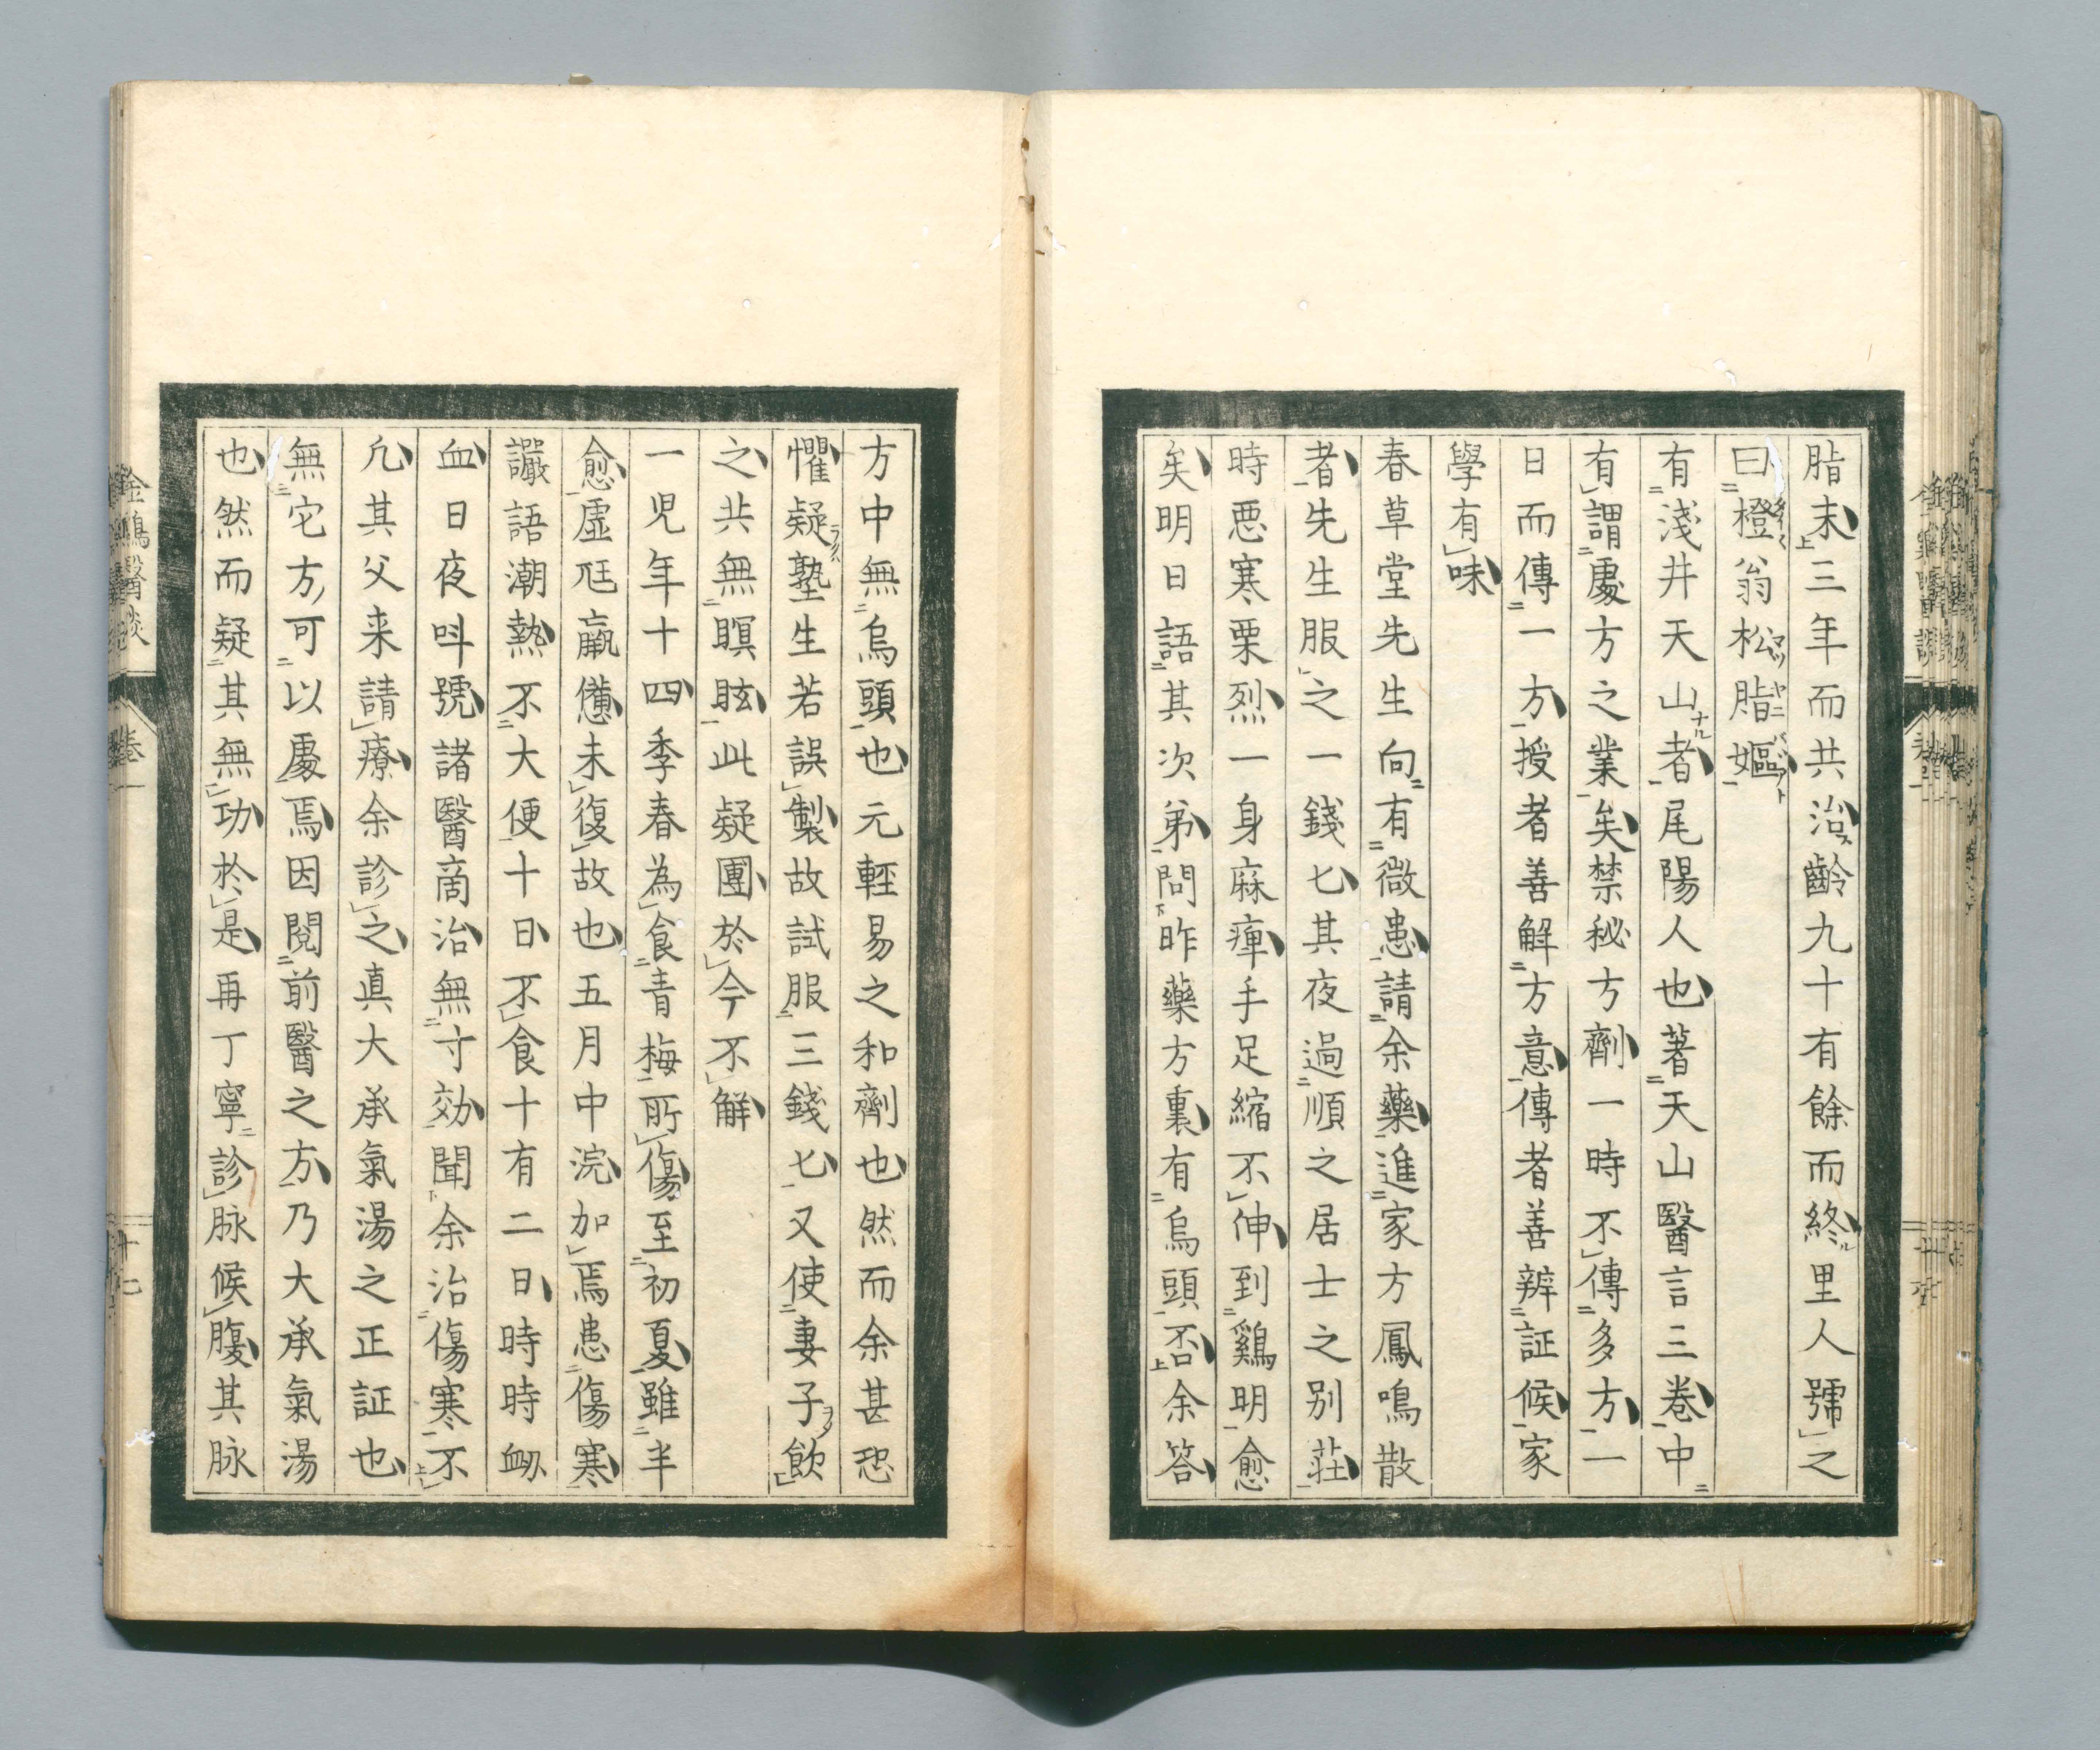 脂末三年而共治齡九十有餘而終里人號之
曰橙翁松脂嫗
有淺井天山者尾陽人也著天山醫言三卷中
有謂處方之業矣禁秘方劑一時不傳多方一
日而傳一方授者善解方意傳者善辨証候家
學有味
春草堂先生向有微患請余藥進家方鳳鳴散
者先生服之一錢匕其夜過順之居士之別莊
時悪寒栗烈一身麻痺手足縮不伸到鷄明愈
矣明日語其次弟問昨藥方裏有烏頭否余答
方中無烏頭也元輕易之和劑也然而余甚恐
懼疑塾生若誤製故試服三錢匕又使妻子飲
之共無瞑眩此疑團於今不解
一児年十四季春為食青梅所傷至初夏雖半
愈虛尫羸憊未復故也五月中浣加焉患傷寒
讝語潮熱不大便十日不食十有二日時時衂
血日夜呌號諸醫啇治無寸效聞余治傷寒不
凢其父来請療余診之真大承氣湯之正証也
無它方可以處焉因閱前醫之方乃大承氣湯
也然而疑其無功於是再丁寧診脉候腹其脉
金鷄醫談
卷一
十七